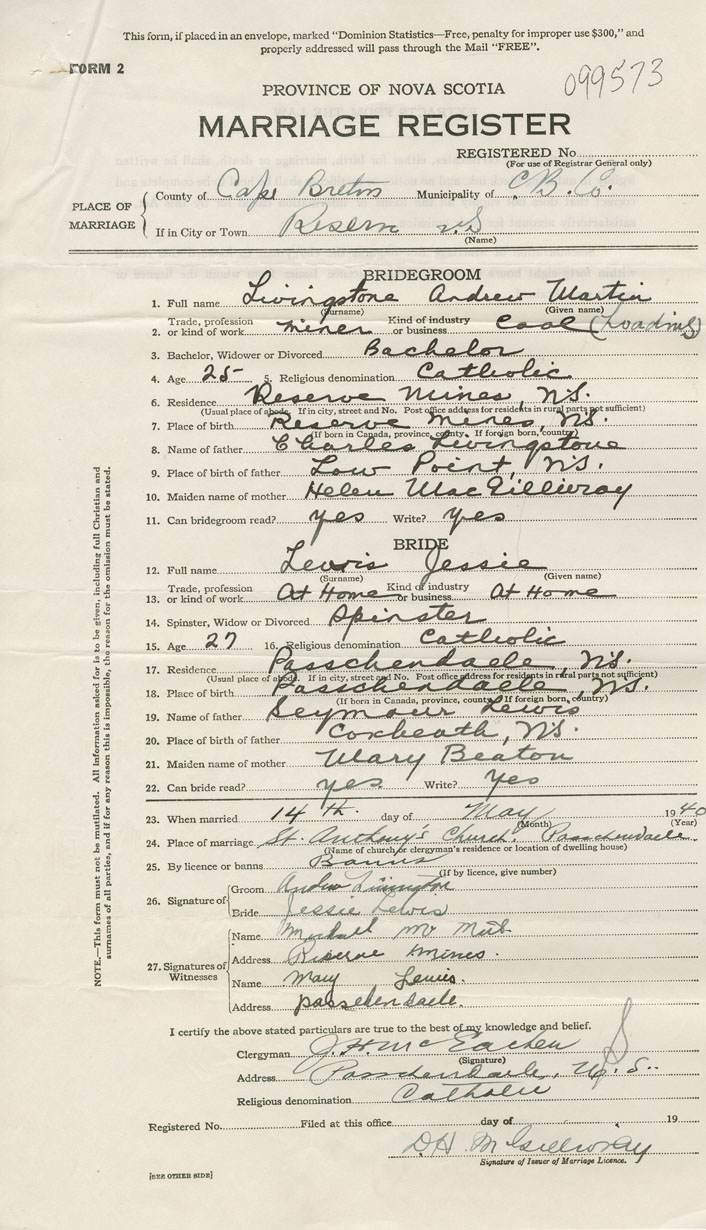 This form, if placed in an envelope, marked "Dominion Statistics—Free, penalty for improper use $300," and
properly addressed will pass through the Mail "FREE".
FORM 2
099573
PROVINCE OF NOVA SCOTIA
MARRIAGE REGISTER
REGISTERED No.
(For use of Registrar General only)
PLACE OF MARRIAGE
County of Cape Breton Municipality of C.B. Co.
If in City or Town Reserve N.S
(Name)
BRIDEGROOM
1. Full name Livingstone Andrew Martin
(Surname) (Given name)
2. Trade, profession or kind of work miner Kind of industry or business Coal (Loading)
3. Bachelor, Widower or Divorced Bachelor
4. Age 25 5. Religious denomination Catholic
6. Residence Reserve Mines, N.S.
(Usual place of abode. If in city, street and No. Post office address for residents in rural parts not sufficient)
7. Place of birth Reserve Mines, N.S.
(If born in Canada, province, county. If foreign born, country)
8. Name of father Charles Livingstone
9. Place of birth of father Low Point, N.S.
10. Maiden name of mother Helen MacGillivray
11. Can bridegroom read? yes Write? yes
BRIDE
12. Full name Lewis Jessie
(Surname) (Given name)
13. Trade, profession or kind of work At Home Kind of industry or business At Home
14. Spinster, Widow or Divorced Spinster
15. Age 27 16. Religious denomination Catholic
17. Residence Passchendaele, N.S.
(Usual place of abode. If in city, street and No. Post office address for residents in rural parts not sufficient)
18. Place of birth Passchendaele, N.S.
(If born in Canada, province, county. If foreign born, country)
19. Name of father Seymour Lewis
20. Place of birth of father Coxheath, N.S.
21. Maiden name of mother Mary Beaton
22. Can bride read? yes Write? yes
23. When married 14 th. day of May 1940
(Month) (Year)
24. Place of marriage St. Anthony's Church, Passchendaele
(Name of church or clergyman's residence or location of dwelling house)
25. By licence or banns Banns
(If by licence, give number)
26. Signature of
Groom Andrew
Bride Jessie Lewis
27. Signatures of Witnesses
Name
Address Reserve Mines.
Name Mary Lewis.
Address passchendaele.
I certify the above stated particulars are true to the best of my knowledge and belief.
Clergyman J. H. McEachen
(Signature)
Address Passchendaele, N.S.
Religious denomination Catholic
Registered No. Filed at this office day of 19
D H McGillivray
Signature of Issuer of Marriage Licence.
[SEE OTHER SIDE]
NOTE.—This form must not be mutilated. All information asked for is to be given, including full Christian and
surnames of all parties, and if for any reason this is impossible, the reason for the omission must be stated.